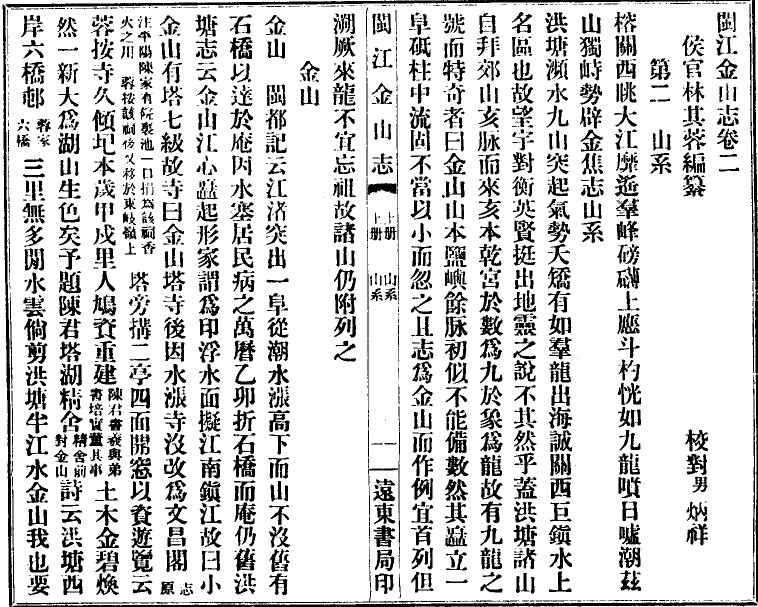 閩江金山志卷二
侯官林其蓉編纂 校對男炳祥
第二 山系
榕關西眺大江靡迤羣峰磅礴上應斗杓恍如九龍噴日噓潮茲
山獨峙勢辟金焦志山系
洪塘瀕水九山突起氣勢夭矯有如羣龍出海誠關西巨鎭水上
名區也故望宇對衡英賢挺出地靈之說不其然乎蓋洪塘諸山
自拜郊山亥脉而來亥本乾宮於數爲九於象爲龍故有九龍之
號而特奇者曰金山山本鹽嶼餘脉初似不能備數然其矗立一
阜砥柱中流固不當以小而忽之且志爲金山而作例宜首列但
閩江金山志 上册 山系 上册 山系 一 遠東書局印
溯厥來龍不宜忘祖故諸山仍附列之
金山
金山 閩都記云江渚突出一阜從潮水漲高下而山不沒舊有
石橋以達於庵因水塞居民病之萬曆乙卯折石橋而庵仍舊洪
塘志云金山江心矗起形家謂爲印浮水面擬江南鎭江故曰小
金山有塔七級故寺曰金山塔寺後因水漲寺沒改爲文昌閣 志原
注平陽陳家有院製池一口捐爲該祠香火之用 蓉按該祠後又移於東岐嶺上 塔旁搆二亭四面開窻以資遊覽云
蓉按寺久傾圮本歲甲戍里人鳩資重建 陳君書羲與弟書培實董其事 土木金碧煥
然一新大爲湖山生色矣予題陳君塔湖精舍 精舍前對金山 詩云洪塘西
岸六橋邨 蓉家六橋 三里無多閒水雲倘剪洪塘半江水金山我也要